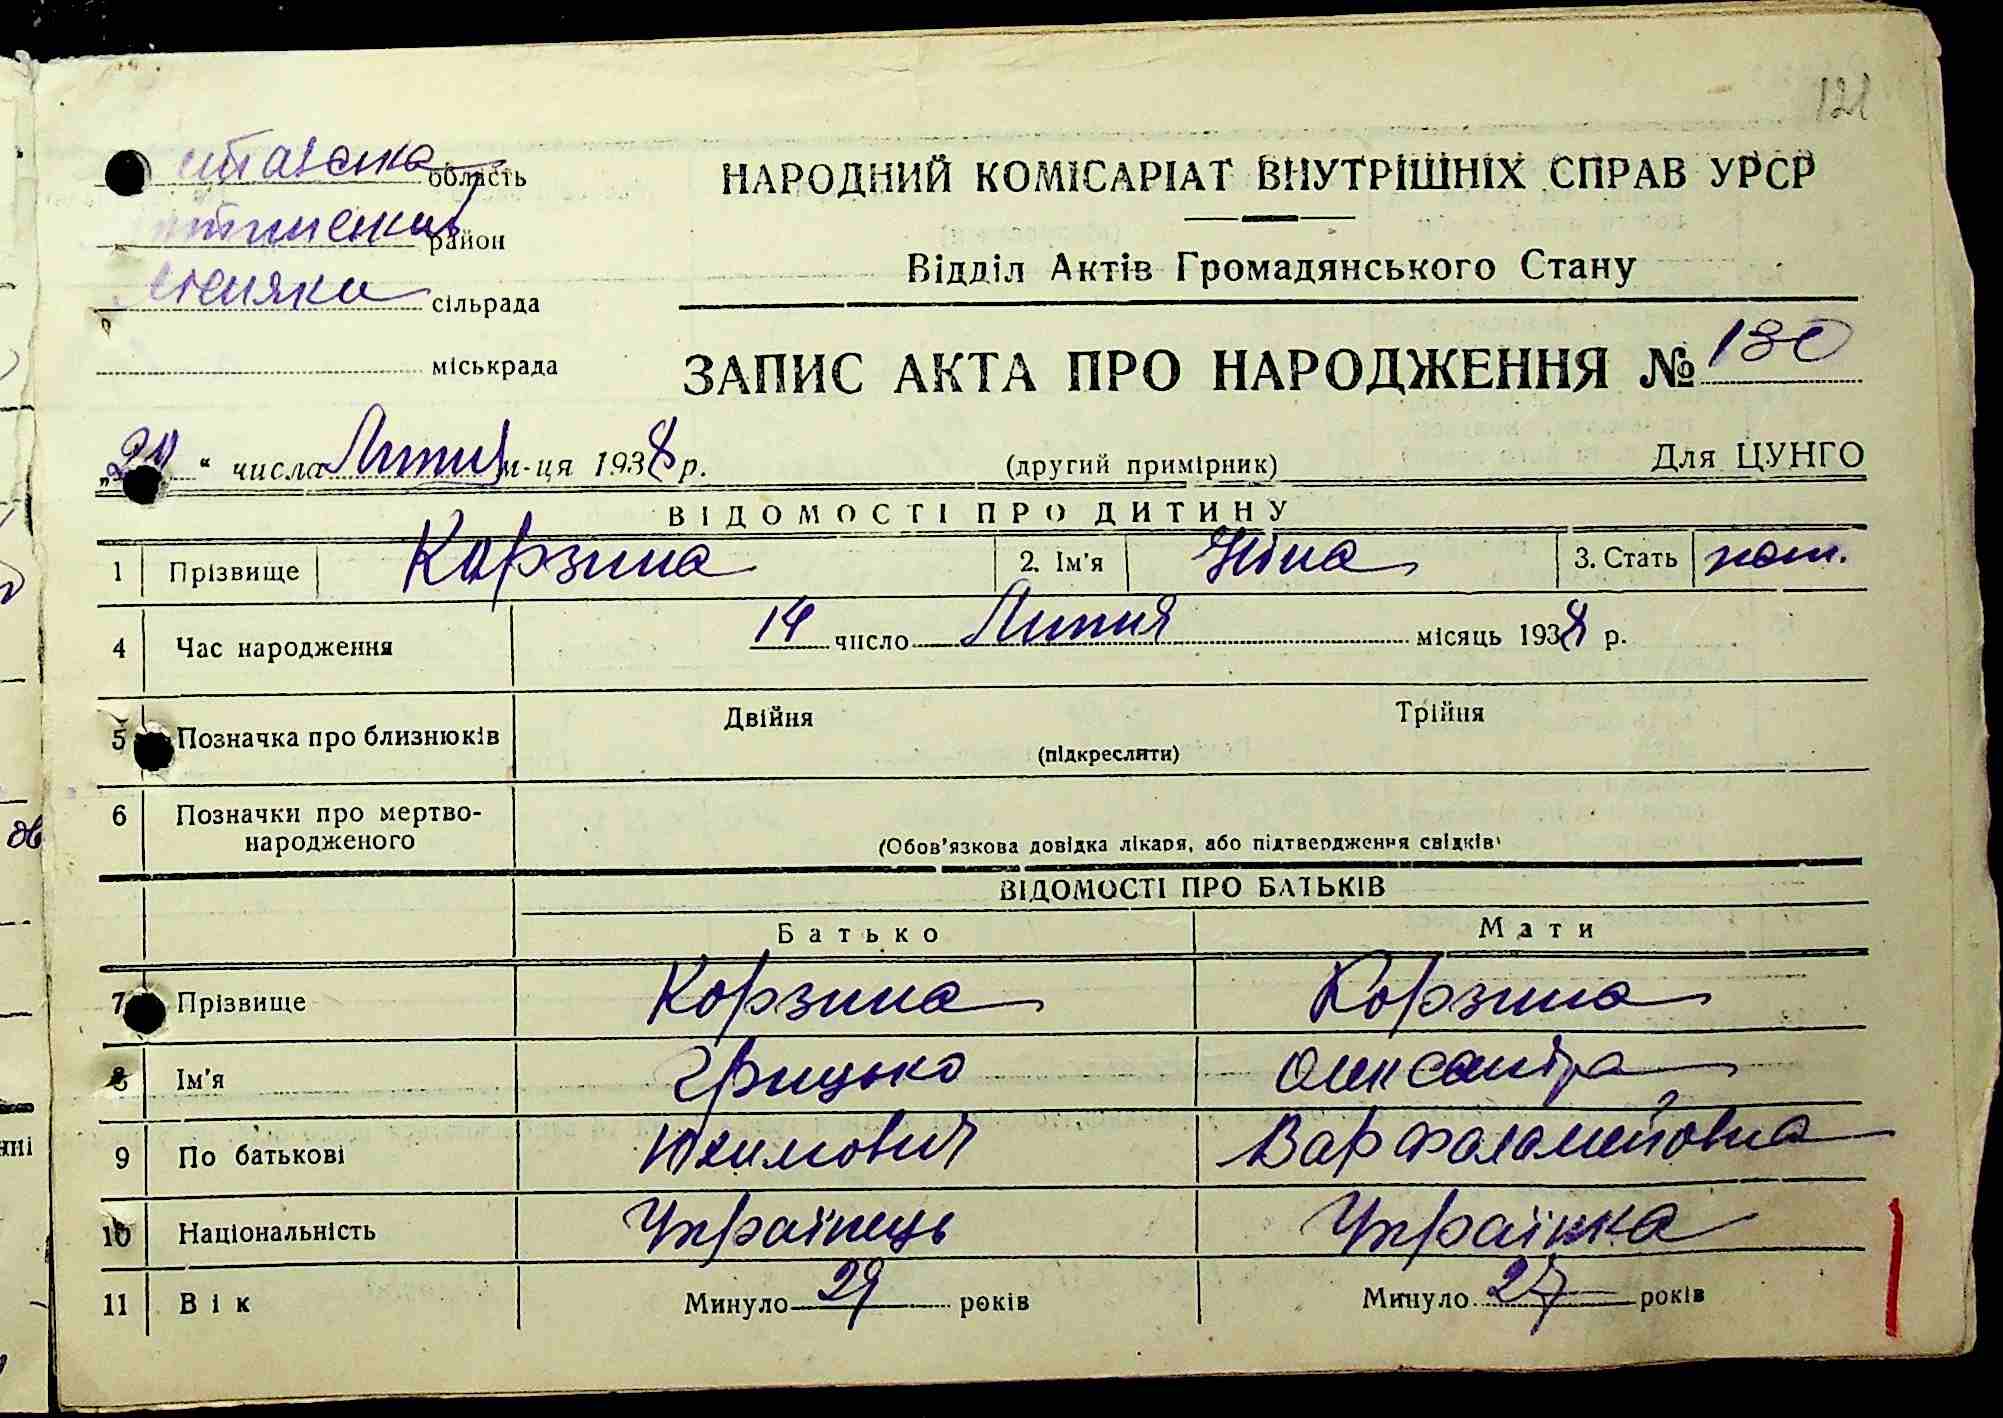 121
область
НАРОДНИЙ КОМІСАРІАТ ВНУТРІШНІХ СПРАВ УРСР
район
Відділ Актів Громадянського Стану
сільрада
міськрада
ЗАПИС АКТА ПРО НАРОДЖЕННЯ № 130
„20“ числа Липня м-ця 1938 р. (другий примірник) Для ЦУНГО
ВІДОМОСТІ ПРО ДИТИНУ
1 Прізвище Корзина 2. Ім'я Ніна 3. Стать жін.
4 Час народження 14 число Липня місяць 1938 р.
5 Позначка про близнюків Двійня Трійня
(підкреслити)
6 Позначки про мертво-
народженого (Обов'язкова довідка лікаря, або підтвердження свідків)
ВІДОМОСТІ ПРО БАТЬКІВ
Батько Мати
7 Прізвище Корзина Корзина
8 Ім'я Грицько Олександра
9 По батькові Юхимович Варфоломеївна
10 Національність Українець Українка
11 Вік Минуло 29 років Минуло 27 років